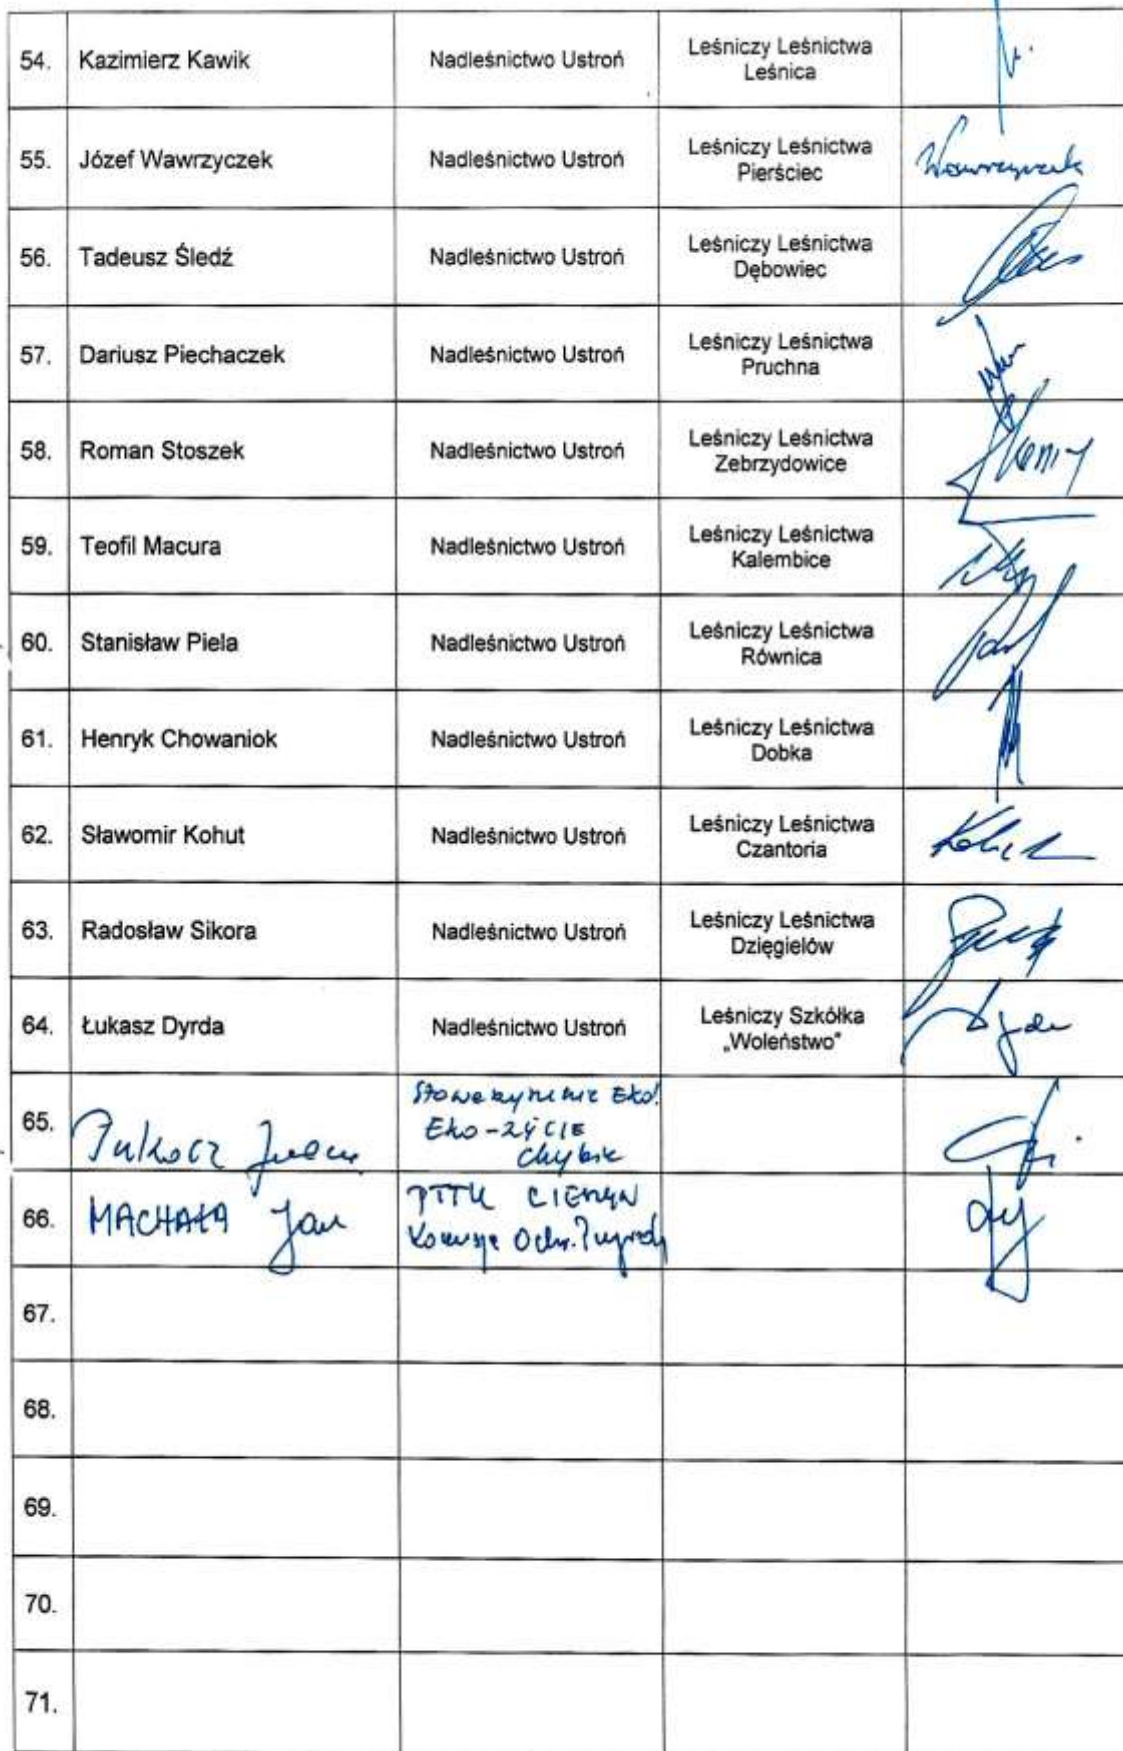 54. Kazimierz Kawik Nadleśnictwo Ustroń Leśniczy Leśnictwa
Leśnica
55. Józef Wawrzyczek Nadleśnictwo Ustroń Leśniczy Leśnictwa
Pierściec
Wawrzyczek
56. Tadeusz Śledź Nadleśnictwo Ustroń Leśniczy Leśnictwa
Dębowiec
57. Dariusz Piechaczek Nadleśnictwo Ustroń Leśniczy Leśnictwa
Pruchna
58. Roman Stoszek Nadleśnictwo Ustroń Leśniczy Leśnictwa
Zebrzydowice
59. Teofil Macura Nadleśnictwo Ustroń Leśniczy Leśnictwa
Kalembice
60. Stanisław Piela Nadleśnictwo Ustroń Leśniczy Leśnictwa
Równica
61. Henryk Chowaniok Nadleśnictwo Ustroń Leśniczy Leśnictwa
Dobka
62. Sławomir Kohut Nadleśnictwo Ustroń Leśniczy Leśnictwa
Czantoria
63. Radosław Sikora Nadleśnictwo Ustroń Leśniczy Leśnictwa
Dzięgielów
64. Łukasz Dyrda Nadleśnictwo Ustroń Leśniczy Szkółka
„Woleństwo"
65. Stowarzyszenie Ekol.
EKO-ŻYCIE
Chybie
66. MACHAŁA Jan PTTK CIESZYN
Komisja Ochr. Przyrody
67.
68.
69.
70.
71.